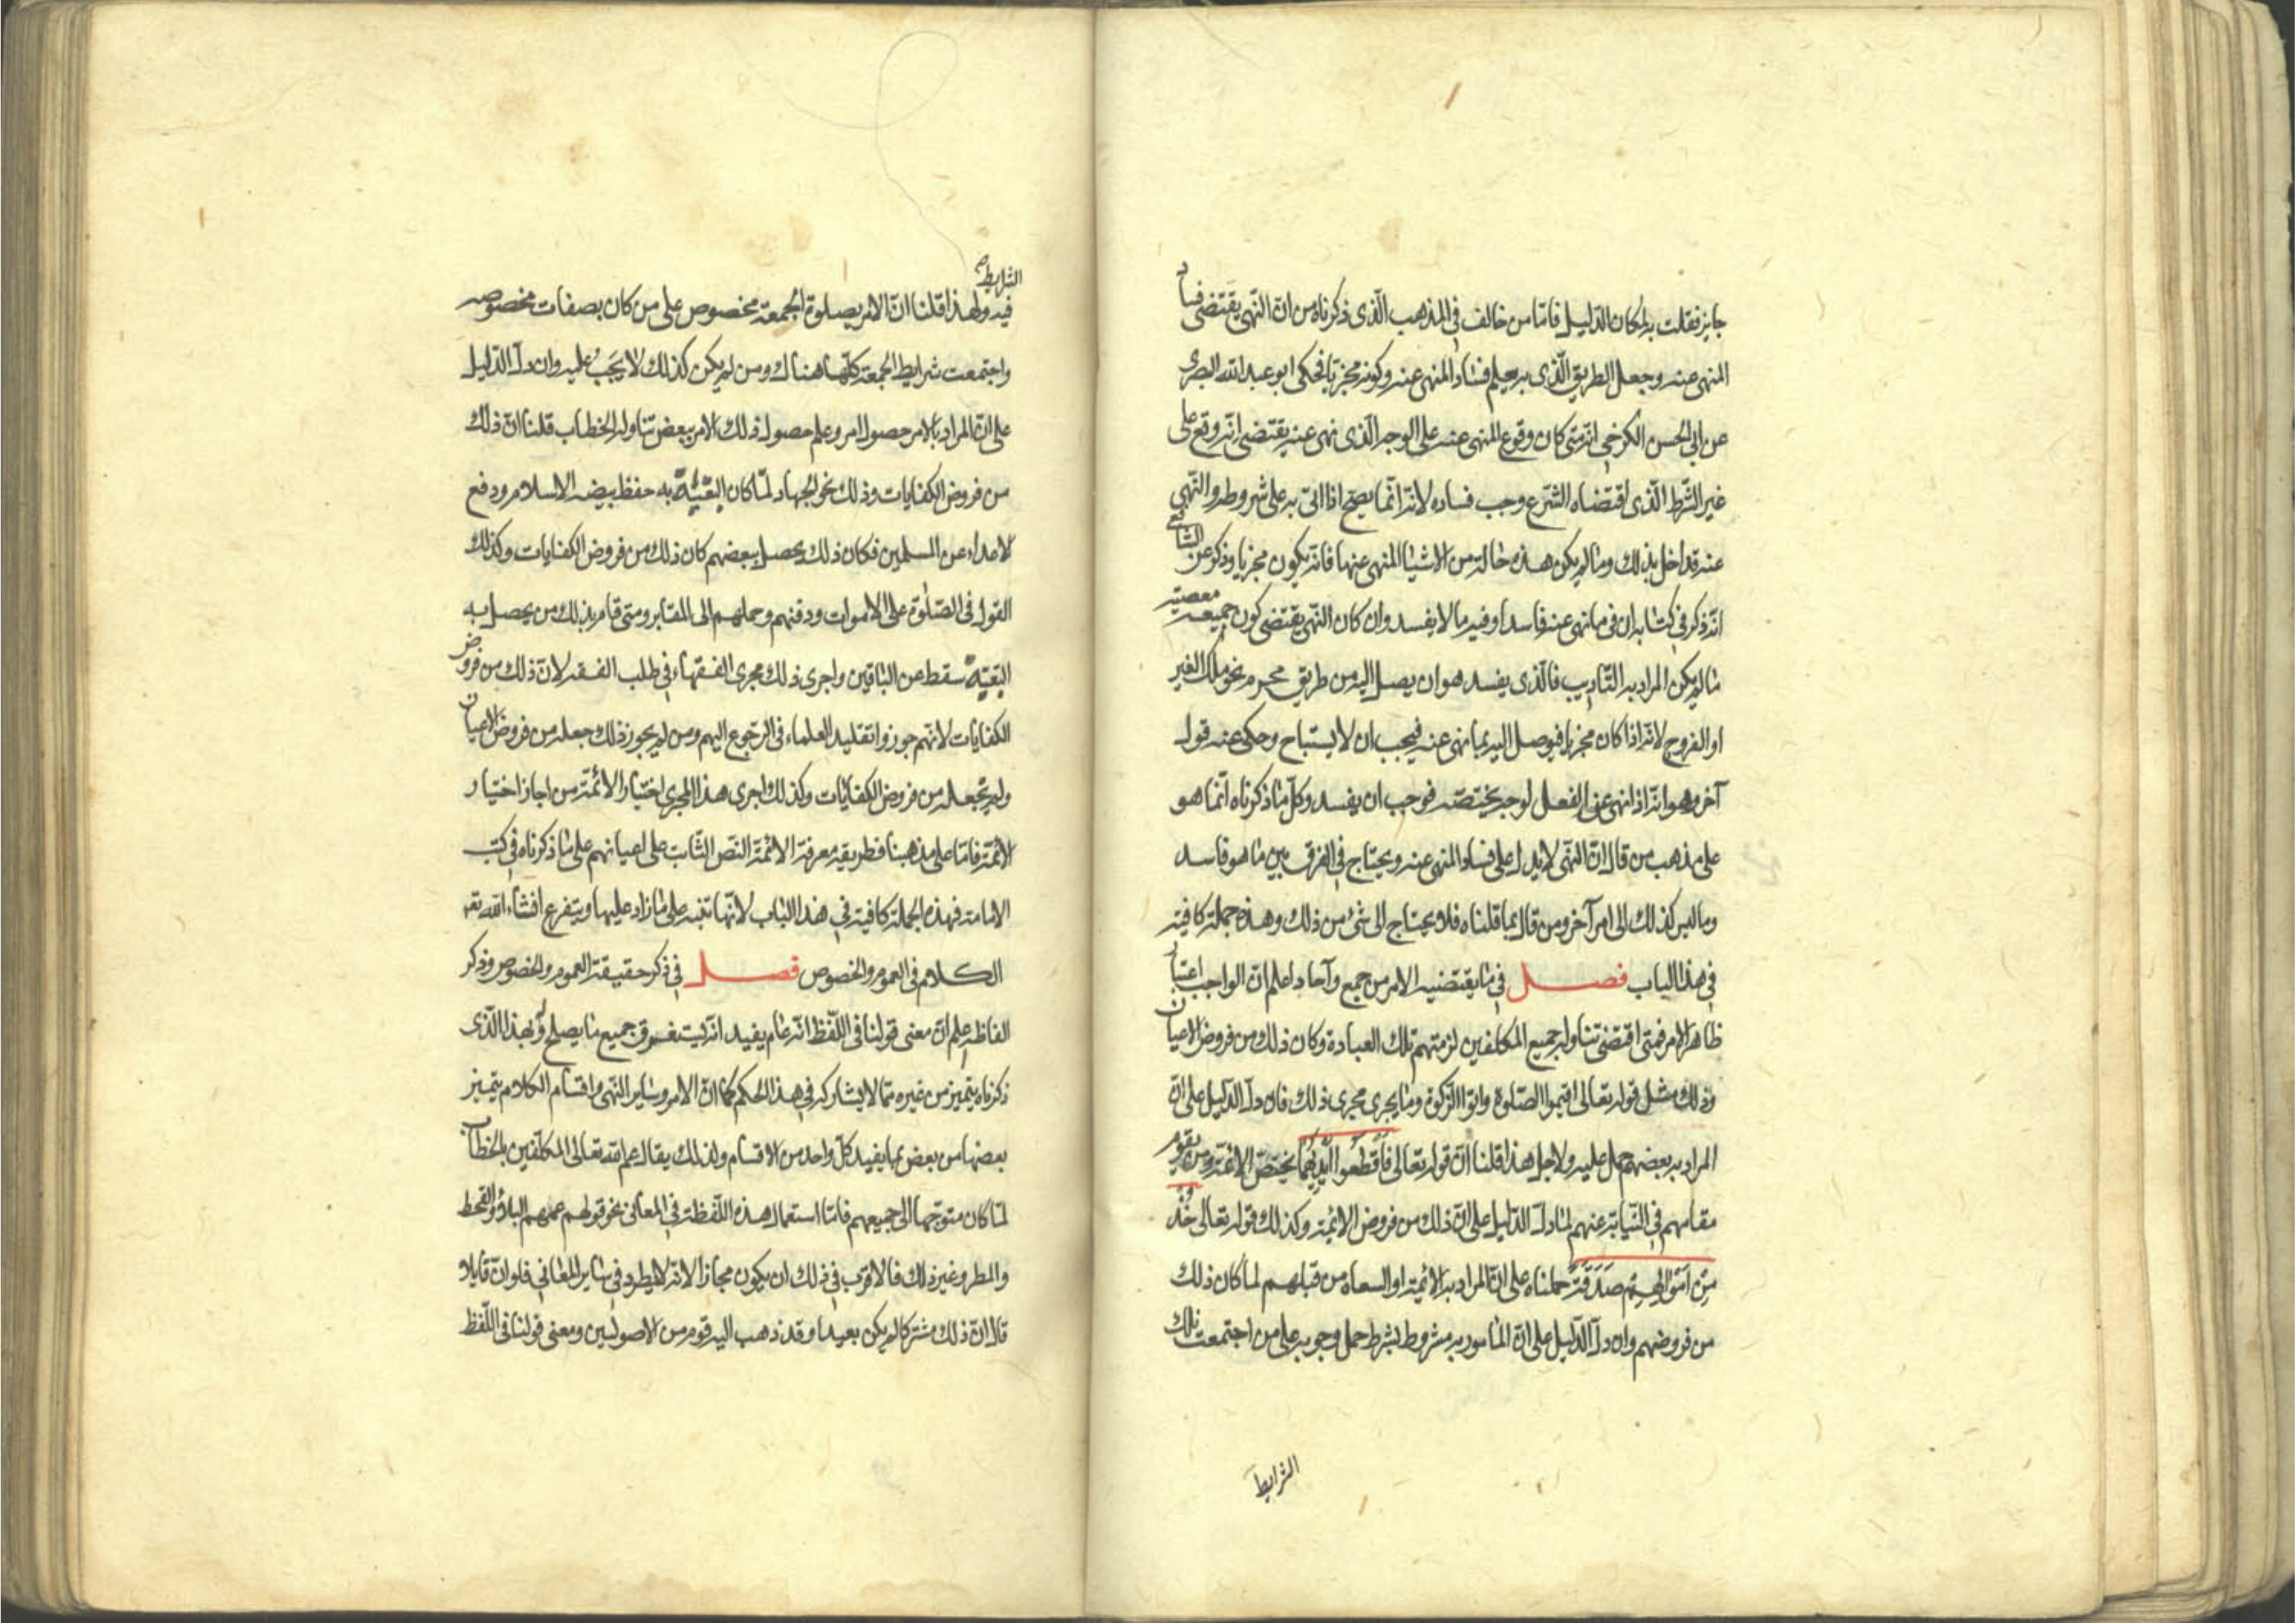 جايز فقلت به لمكان الدّليل فامّا من خالف في المذهب الّذى ذكرناه من انّ النّهى يقتضى فساد
المنهى عنه وجعل الطريق الّذى به يعلم فساد المنهى عنه وكونه مجزيا فحكى ابو عبد الله البصرى
عن ابى الحسن الكرخى انّه متى كان وقوع المنهى عنه على الوجه الّذى نهى عنه يقتضى انّه وقع على
غير الشّرط الّذى اقتضاه الشّرع وجب فساده لانّه انّما يصحّ اذا اتى به على شروطه والنّهى
عنه قد اخل بذلك وما لم يكن هذه حاله من الاشيا المنهى عنها فانّه يكون مجزيا وذكر عن الشافعى
انّه ذكر في كتابه ان في ما نهى عنه فاسدا وفيه ما لا يفسد وان كان النّهى يقتضى كون جميعه معصيته
ما لم يكن المراد به التّاديب فالّذى يفسد هو ان يصل اليه من طريق محرم نحو ملك الغير
او الفروج لانّه اذا كان مجزيا فيوصل اليه بما نهى عنه فيجب ان لا يستباح وحكى عنه قول
آخر وهو انّه اذا نهى عن الفعل لوجه يختصّه فوجب ان يفسد وكلّ ما ذكرناه انّما هو
على مذهب من قال انّ النّهى لا يدل على فساد المنهى عنه ويحتاج في الفرق بين ما هو فاسد
وما ليس كذلك الى امر آخر ومن قال بما قلناه فلا يحتاج الى شئ من ذلك وهذه جملة كافية
في هذا الباب فصل في ما يقتضيه الامر من جمع وآحاد اعلم انّ الواجب اعتبار
ظاهر الامر فمتى اقتضى تناوله جميع المكلفين لزمتهم تلك العبادة وكان ذلك من فروض الاعيان
وذلك مثل قوله تعالى اقيموا الصّلوة واتوا الزّكوة وما يجرى مجرى ذلك فان دلّ الدّليل على انّ
المراد به بعضهم حمل عليه ولاجل هذا قلنا انّ قوله تعالى فَاقْطَعُوا اَيْدِيَهُمَا يختصّ الائمّة ومن يقوم
مقامهم في النّيابة عنهم لما دلّ الدّليل على انّ ذلك من فروض الائمّة وكذلك قوله تعالى خُذْ
مِنْ اَمْوَالِهِمْ صَدَقَةً حملناه على انّ المراد به الائمّة او السعاه من قبلهم لما كان ذلك
من فروضهم وان دلّ الدّليل على انّ المامور به مشروط بشرط حمل وجوبه على من اجتمعت تلك
الشرايط
الشرايط
فيه ولهذا قلنا انّ الامر بصلوة الجمعة مخصوص على من كان بصفات مخصوصه
واجتمعت شرايط الجمعة كلّها هناك ومن لم يكن كذلك لا يَجب عليه وان دلّ الدّليل
على انّ المراد بالامر حصول امر وعلم حصول ذلك الامر ببعض تناوله الخطاب قلنا انّ ذلك
من فروض الكفايات وذلك نحو الجهاد لمّا كان البغية به حفظ بيضه الاسلام ودفع
الاعداء عن المسلمين فكان ذلك يحصل ببعضهم كان ذلك من فروض الكفايات وكذلك
القول في الصّلوة على الاموات ودفنهم وحملهم الى المقابر ومتى قام بذلك من يحصل به
البغيّة سقط عن الباقين واجرى ذلك مجرى الفقهاء في طلب الفقه لانّ ذلك من فروض
الكفايات لانّهم جوزوا تقليد العلماء في الرّجوع اليهم ومن لم يجوز ذلك جعله من فروض الاعيان
ولم يجعله من فروض الكفايات وكذلك اجرى هذا المجرى اختيار الائمّة من اجاز اختيار
الائمّة فامّا على مذهبنا فطريقه معرفة الائمّة النّص الثّابت على اعيانهم على ما ذكرناه في كتب
الامامة فهذه الجملة كافية في هذا الباب لانّها تنبه على ما زاد عليها ويتفرع انشاء الله تعه
الكلام في العموم والخصوص فصل في ذكر حقيقة العموم والخصوص وذكر
الفاظه اعلم انّ معنى قولنا في اللّفظ انّه عام يفيد انّه يستغرق جميع ما يصلح له وبهذا الّذى
ذكرناه يتميز من غيره ممّا لا يشاركه في هذا الحكم كما انّ الامر وساير النّهى واقسام الكلام يتميز
بعضها من بعض بما يفيد كلّ واحد من الاقسام ولذلك يقال عم الله تعالى المكلّفين بالخطاب
لمّا كان متوجها الى جميعهم فامّا استعمال هذه اللّفظة في المعانى نحو قولهم عمهم البلاؤ والقحط
والمطر وغير ذلك فالاقرب في ذلك ان يكون مجازا لانّه لا يطرد في ساير المعانى فلو انّ قايلا
قال انّ ذلك مشتركا لم يكن بعيدا وقد ذهب اليه قوم من الاصوليين ومعنى قولنا في اللّفظ